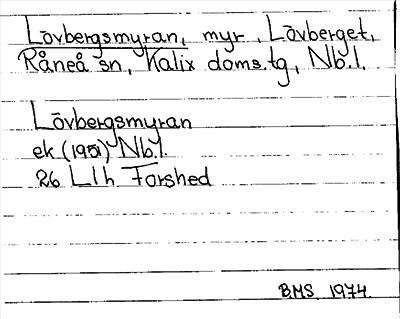 Lövbergsmyran, myr, Lövberget,
Råneå sn, Kalix doms.tg, Nb.l.
Lövbergsmyran
ek (1901) Nb.l.
26 L l h Forshed
B.M.S. 1974.